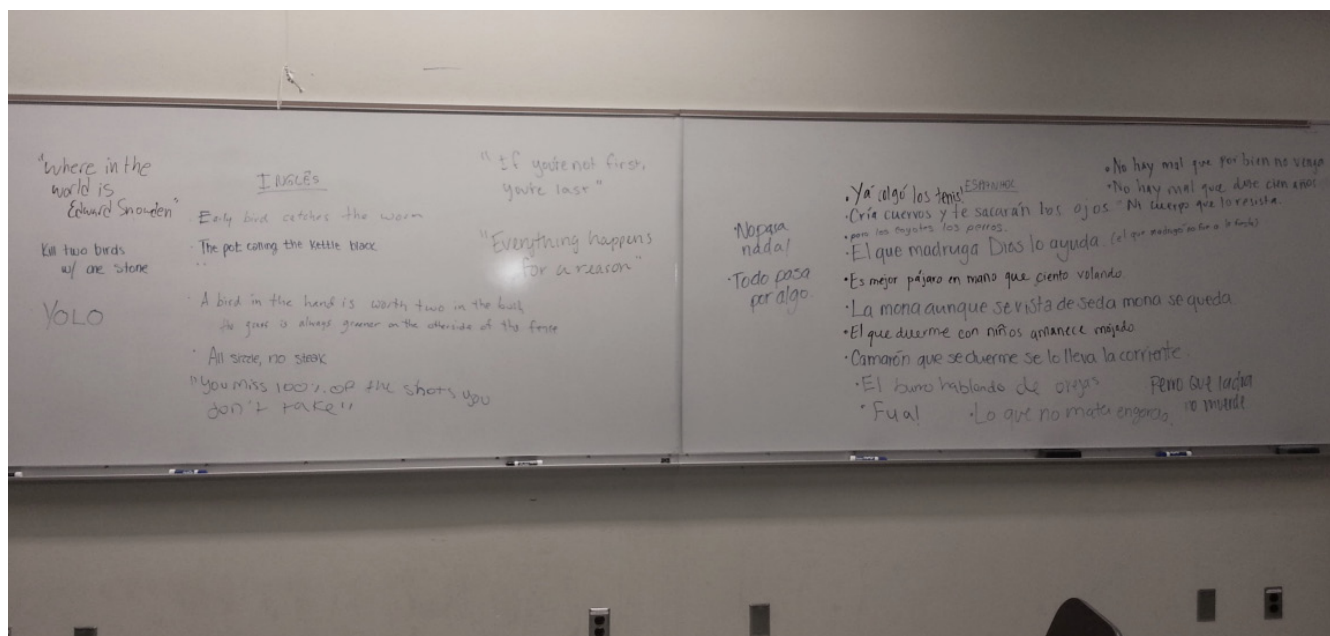 "Where in the
world is
Edward Snowden"
Kill two birds
w/ one stone
YOLO
INGLÊS
· Early bird catches the worm
· The pot calling the kettle black
· A bird in the hand is worth two in the bush
the grass is always greener on the otherside of the fence
· All sizzle, no steak
"You miss 100% of the shots you
don't take"
"If you're not first,
you're last"
"Everything happens
for a reason"
No pasa
nada!
· Todo pasa
por algo.
ESPANHOL
· Ya colgó los tenis!
· Cría cuervos y te sacarán los ojos.
· para los coyotes los perros.
· El que madruga Dios lo ayuda. (el que madrugó no fue a la
· Es mejor pájaro en mano que ciento volando
· La mona aunque se vista de seda mona se queda
· El que duerme con niños amanece mojado
· Camarón que se duerme se lo lleva la corriente.
· El burro hablando de orejas
· Fua!
· Lo que no mata engorda.
Perro que ladra
no muerde
· No hay mal que por bien no venga
· No hay mal que dure cien años
Ni cuerpo que lo resista.